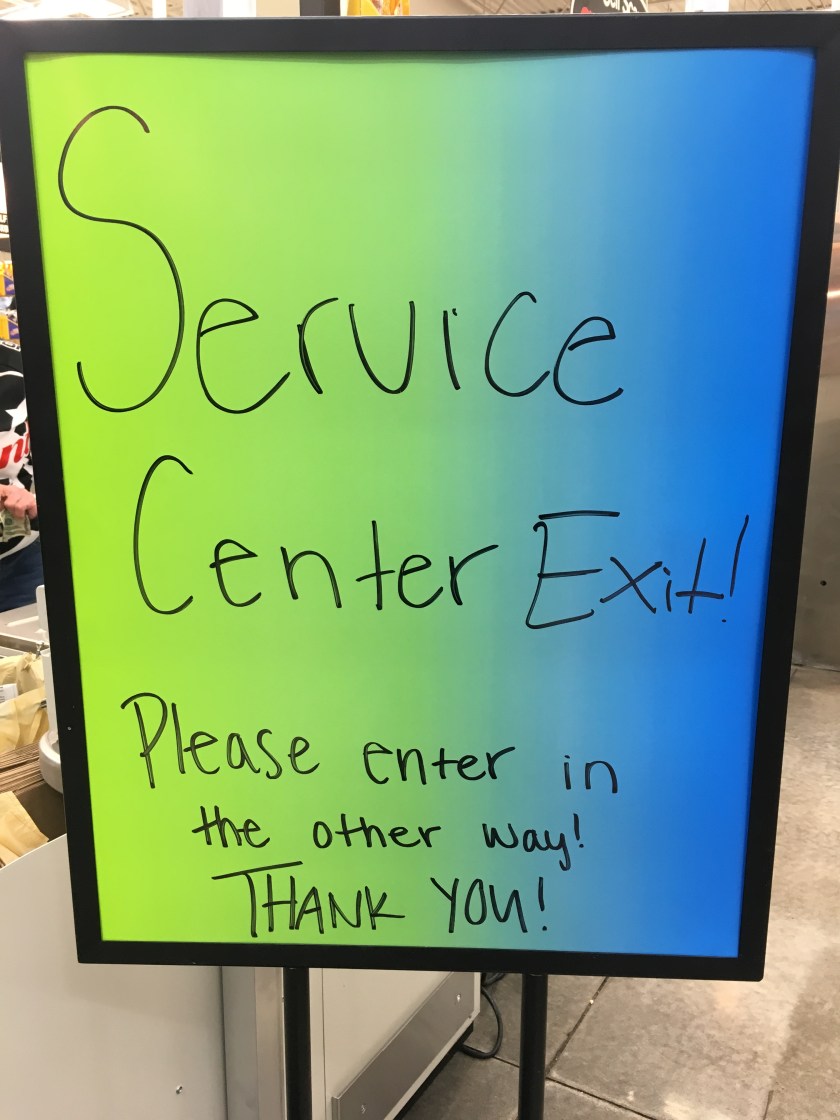 Service
Center Exit!
Please enter in
the other way!
THANK YOU!